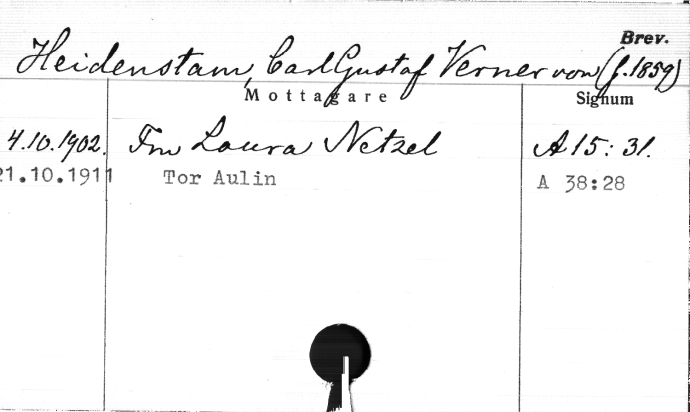 Brev.
Heidenstam, Carl Gustaf Verner von (f. 1859)
Mottagare Signum
4.10.1902. Fru Laura Netzel A 15: 31.
21.10.1911 Tor Aulin A 38:28